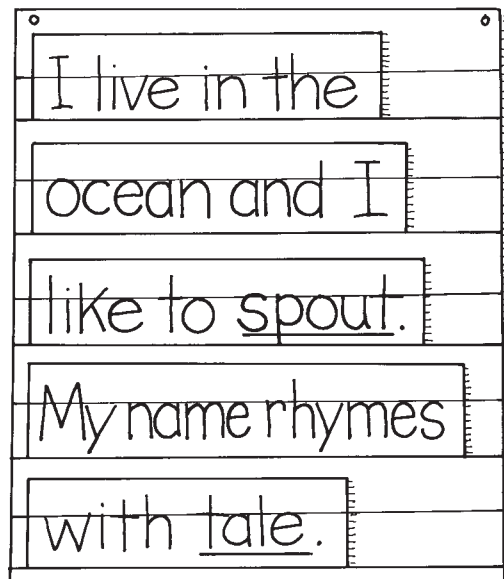 I live in the
ocean and I
like to spout.
My name rhymes
with tale.